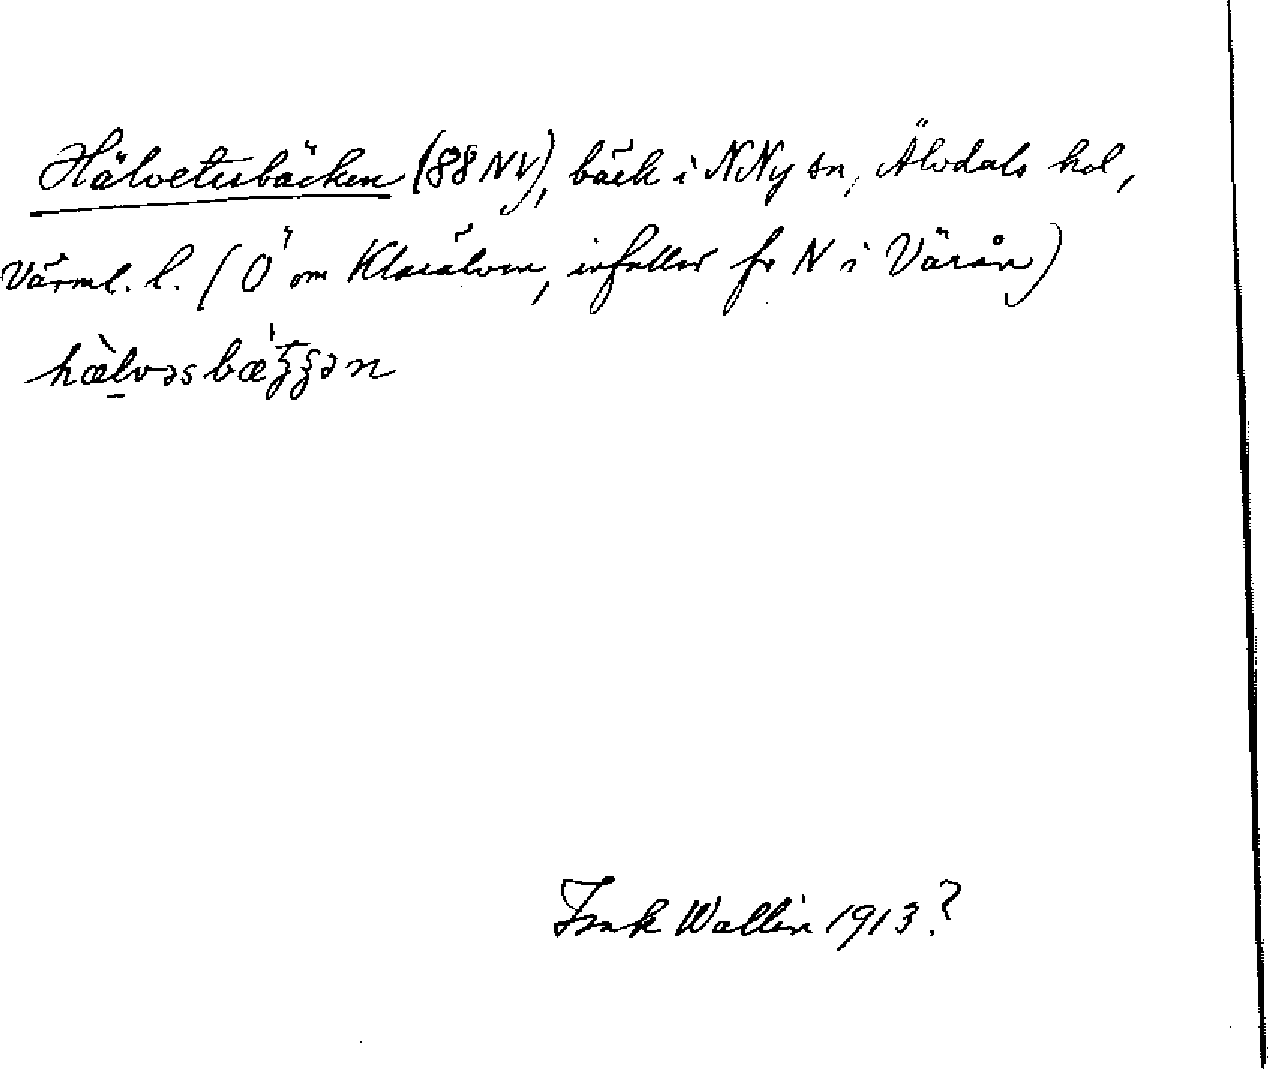 Hälvetesbäcken (88 NV), bäck i N Ny sn, Älvdals hd,
Värml. l. (Ö om Klarälven, infaller fr N i Värån)
hæ̀lvəsbæ̍ʒʒən
Isak Wallin 1913?